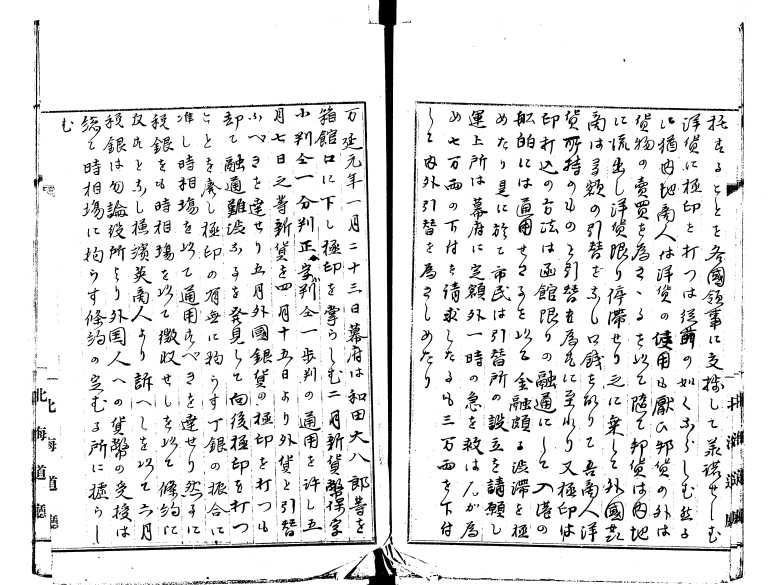 することを各國領事に支拂して承諾せしむ
洋貨に極印を打つは従前の如くならしむ然る
に猶内地商人は洋貨の使用を厭ひ邦貨の外は
貨物の賣買を為さゝるを以て随て邦貨は内地
に流出し洋貨限り停滞せり之に乗して外國
商は多額の引替をなし口銭を取りて吾商人洋
貨所持のものと引替を為すに至れり又極印は
印打込の方法は函館限りの融通にして入港の
船舶には通用せさるを以て金融頗る渋滞を極
めたり是に於て市民は引替所の設立を請願し
運上所は幕府に定額外一時の急を救はんが為
め七万両の下付を請求したるも三万両を下付
して内外引替を為さしめたり
万延元年一月二十三日幕府は和田大八郎等を
箱館口に下し極印を掌らしむ二月新貨幣保字
小判金一分判正字判金一歩判の通用を許し五
月七日之等新貨を四月十五日より外貨と引替
ふべきを達せり五月外國銀貨の極印を打つも
却て融通難渋なるを発見して向後極印を打つ
ことを廃し極印の有無に拘らす丁銀の振合に
准し時相場を以て通用すべきを達せり然るに
税銀をも時相場を以て徴収せしを以て條約に
反すとなし横濱英商人より訴へしを以て六月
税銀は勿論役所より外國人への貨幣の受授は
総て時相場に拘らす條約の定むる所に據らし
む
北海道廳
北海道廳